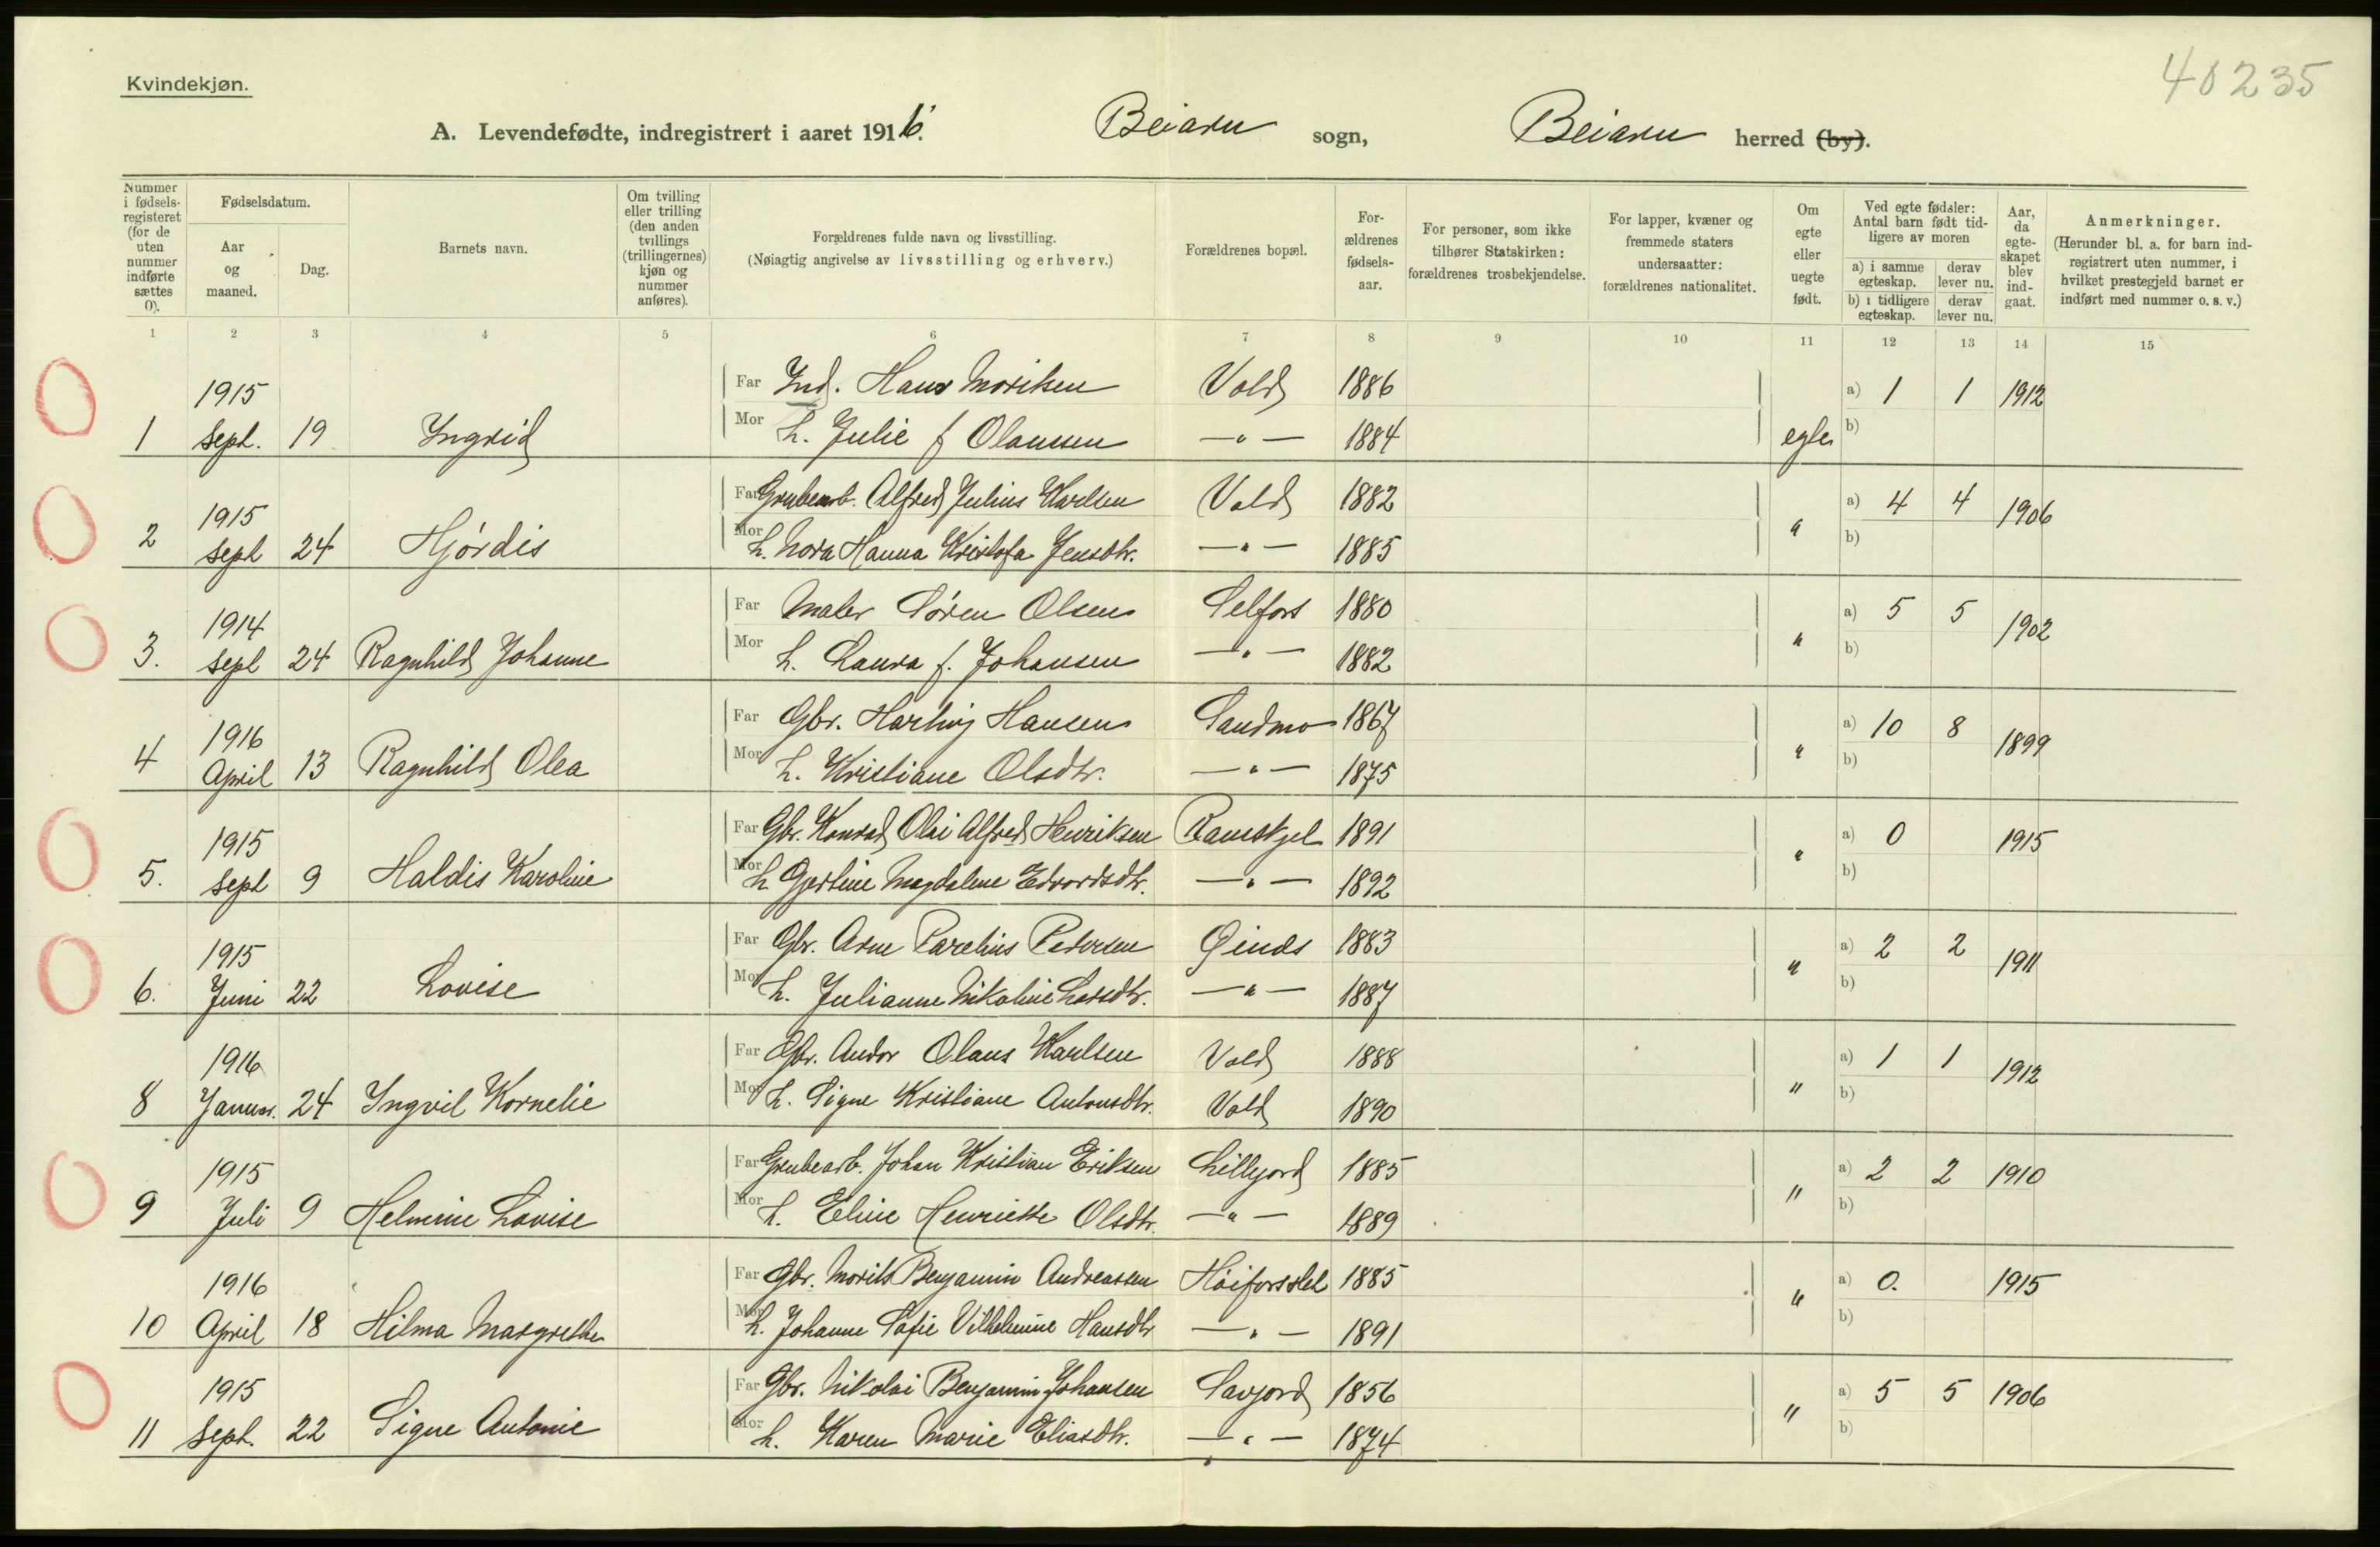 40235
Kvindekjøn.
A. Levendefødte, indregistrert i aaret 1916. Beiarn sogn, Beiarn herred (by).
Nummer i fødselsregisteret (for de uten nummer indførte sættes 0).
Fødselsdatum.
Aar og maaned.
Dag.
Barnets navn.
Om tvilling eller trilling (den anden tvillings (trillingernes) kjøn og nummer anføres).
Forældrenes fulde navn og livsstilling.
(Nøiagtig angivelse av livsstilling og erhverv.)
Forældrenes bopæl.
Forældrenes fødselsaar.
For personer, som ikke tilhører Statskirken: forældrenes trosbekjendelse.
For lapper, kvæner og fremmede staters undersaatter: forældrenes nationalitet.
Om egte eller uegte født.
Ved egte fødsler: Antal barn født tidligere av moren
a) i samme egteskap. derav lever nu.
b) i tidligere egteskap. derav lever nu.
Aar, da egteskapet blev indgaat.
Anmerkninger.
(Herunder bl. a. for barn indregistrert uten nummer, i hvilket prestegjeld barnet er indført med nummer o. s. v.)
1 2 3 4 5 6 7 8 9 10 11 12 13 14 15
1915 Far Ind. Hans Moritsen Vold 1886 a) 1 1 1912
1 Sept. 19 Ingrid Mor h. Julie f Olaussen —"— 1884 egte b)
1915 Far Grubearb. Alfred Julius Karlsen Vold 1882 a) 4 4 1906
2 Sept 24 Hjørdis Mor h. Nora Hanna Kristofa Jensdtr. —"— 1885 " b)
1914 Far Maler Søren Olsen Selfors 1880 a) 5 5 1902
3. Sept 24 Ragnhild Johanne Mor h. Laura f. Johansen —"— 1882 " b)
1916 Far Gbr. Hartvig Hansen Sandmo 1867 a) 10 8 1899
4 April 13 Ragnhild Olea Mor h. Kristiane Olsdtr. —"— 1875 " b)
1915 Far Gbr. Konrad Olai Alfred Henriksen Ramskjel 1891 a) 0 1915
5. Sept 9 Haldis Karoline Mor h Gjertine Magdalene Edvardsdtr. —"— 1892 " b)
1915 Far Gbr. Arne Parelius Pedersen 1883 a) 2 2 1911
6. Juni 22 Lovise Mor h. Julianne Nikoline Larsdtr. —"— 1887 " b)
1916 Far Gbr. Andor Olaus Karlsen Vold 1888 a) 1 1 1912
8 Januar. 24 Ingvil Kornelie Mor h. Signe Kristiane Antonsdtr. Vold 1890 " b)
1915 Far Grubearb. Johan Kristian Eriksen Lilljord 1885 a) 2 2 1910
9 Juli 9 Helmine Lovise Mor h. Eline Henriette Olsdtr. —"— 1889 " b)
1916 Far Gbr. Morits Benjamin Andreassen Høiforsslet 1885 a) 0. 1915
10 April 18 Hilma Margrethe Mor h. Johanne Sofie Vilhelmine Hansdtr —"— 1891 " b)
1915 Far Gbr. Nikolai Benjamin Johansen Savjord 1856 a) 5 5 1906
11 Sept. 22 Signe Antonie Mor h. Karen Marie Eliasdtr. —"— 1874 " b)